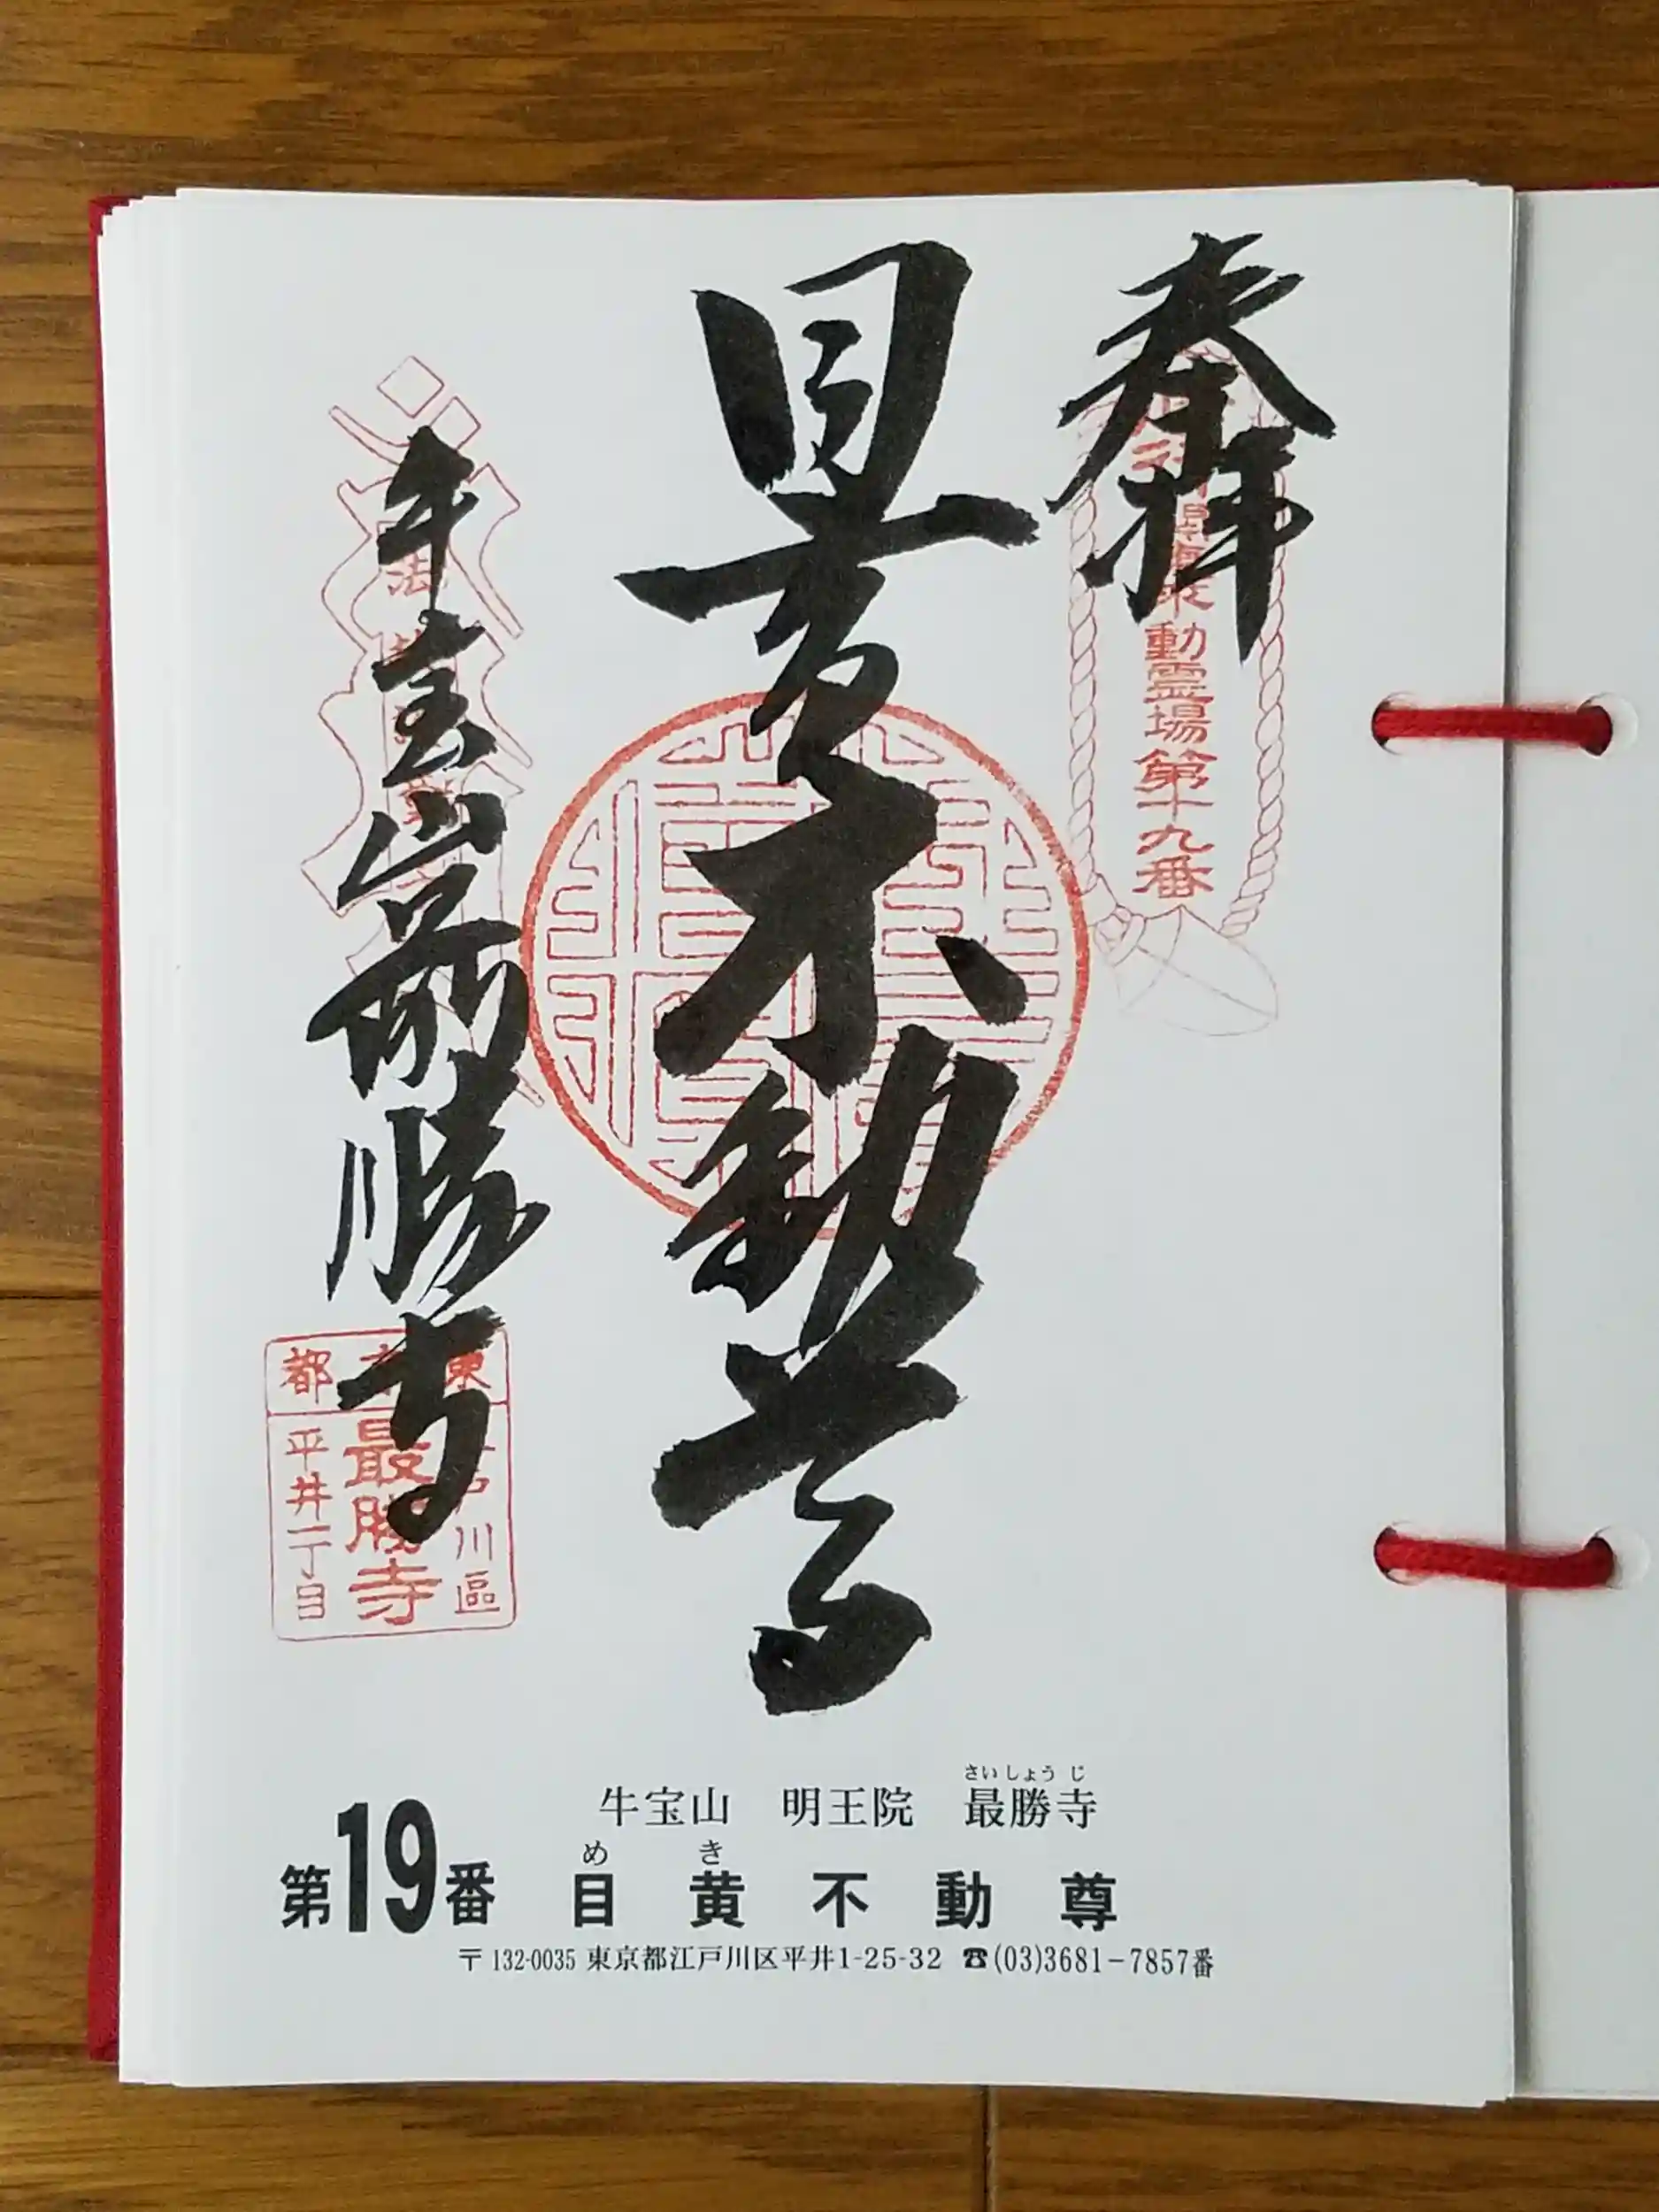 奉拝
動霊場第十九番
目黄不動尊
牛宝山最勝寺
東
都
川區
最勝寺
平井一丁目
さいしょうじ
牛宝山 明王院 最勝寺
め き
第19番 目黄不動尊
〒132-0035 東京都江戸川区平井1-25-32 ☎(03)3681-7857番